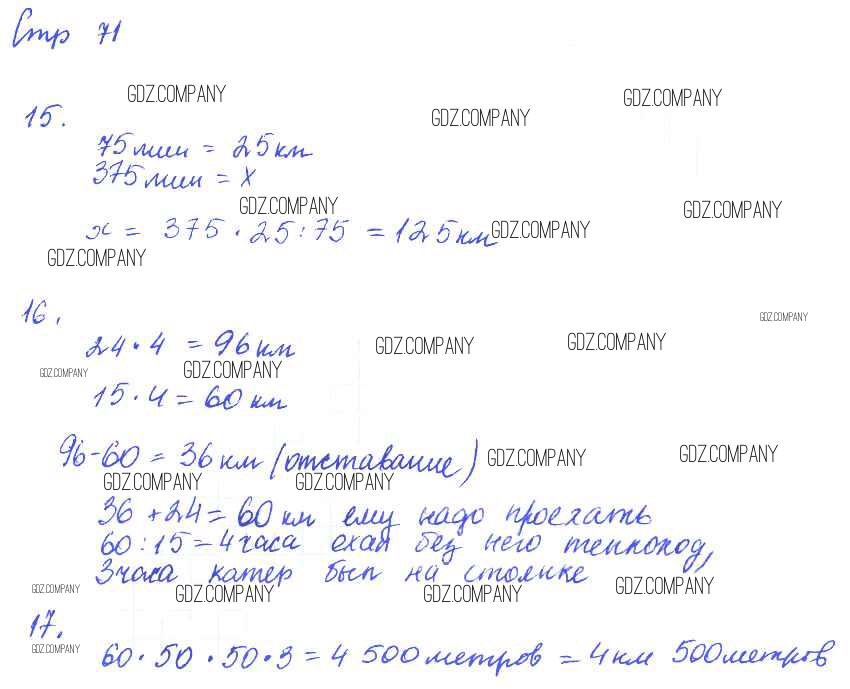 Стр 71
GDZ.COMPANY
GDZ.COMPANY
GDZ.COMPANY
15.
75 мин = 25 км
375 мин = x
GDZ.COMPANY
GDZ.COMPANY
x = 375 · 25 : 75 = 125 км
GDZ.COMPANY
GDZ.COMPANY
16.
GDZ.COMPANY
24 · 4 = 96 км
GDZ.COMPANY
GDZ.COMPANY
GDZ.COMPANY
GDZ.COMPANY
15 · 4 = 60 км
96 - 60 = 36 км (отставание)
GDZ.COMPANY
GDZ.COMPANY
GDZ.COMPANY
GDZ.COMPANY
36 + 24 = 60 км ему надо проехать
60 : 15 = 4 часа ехал без него теплоход,
3 часа катер был на стоянке
GDZ.COMPANY
GDZ.COMPANY
GDZ.COMPANY
GDZ.COMPANY
17.
GDZ.COMPANY
60 · 50 · 50 · 3 = 4 500 метров = 4 км 500 метров